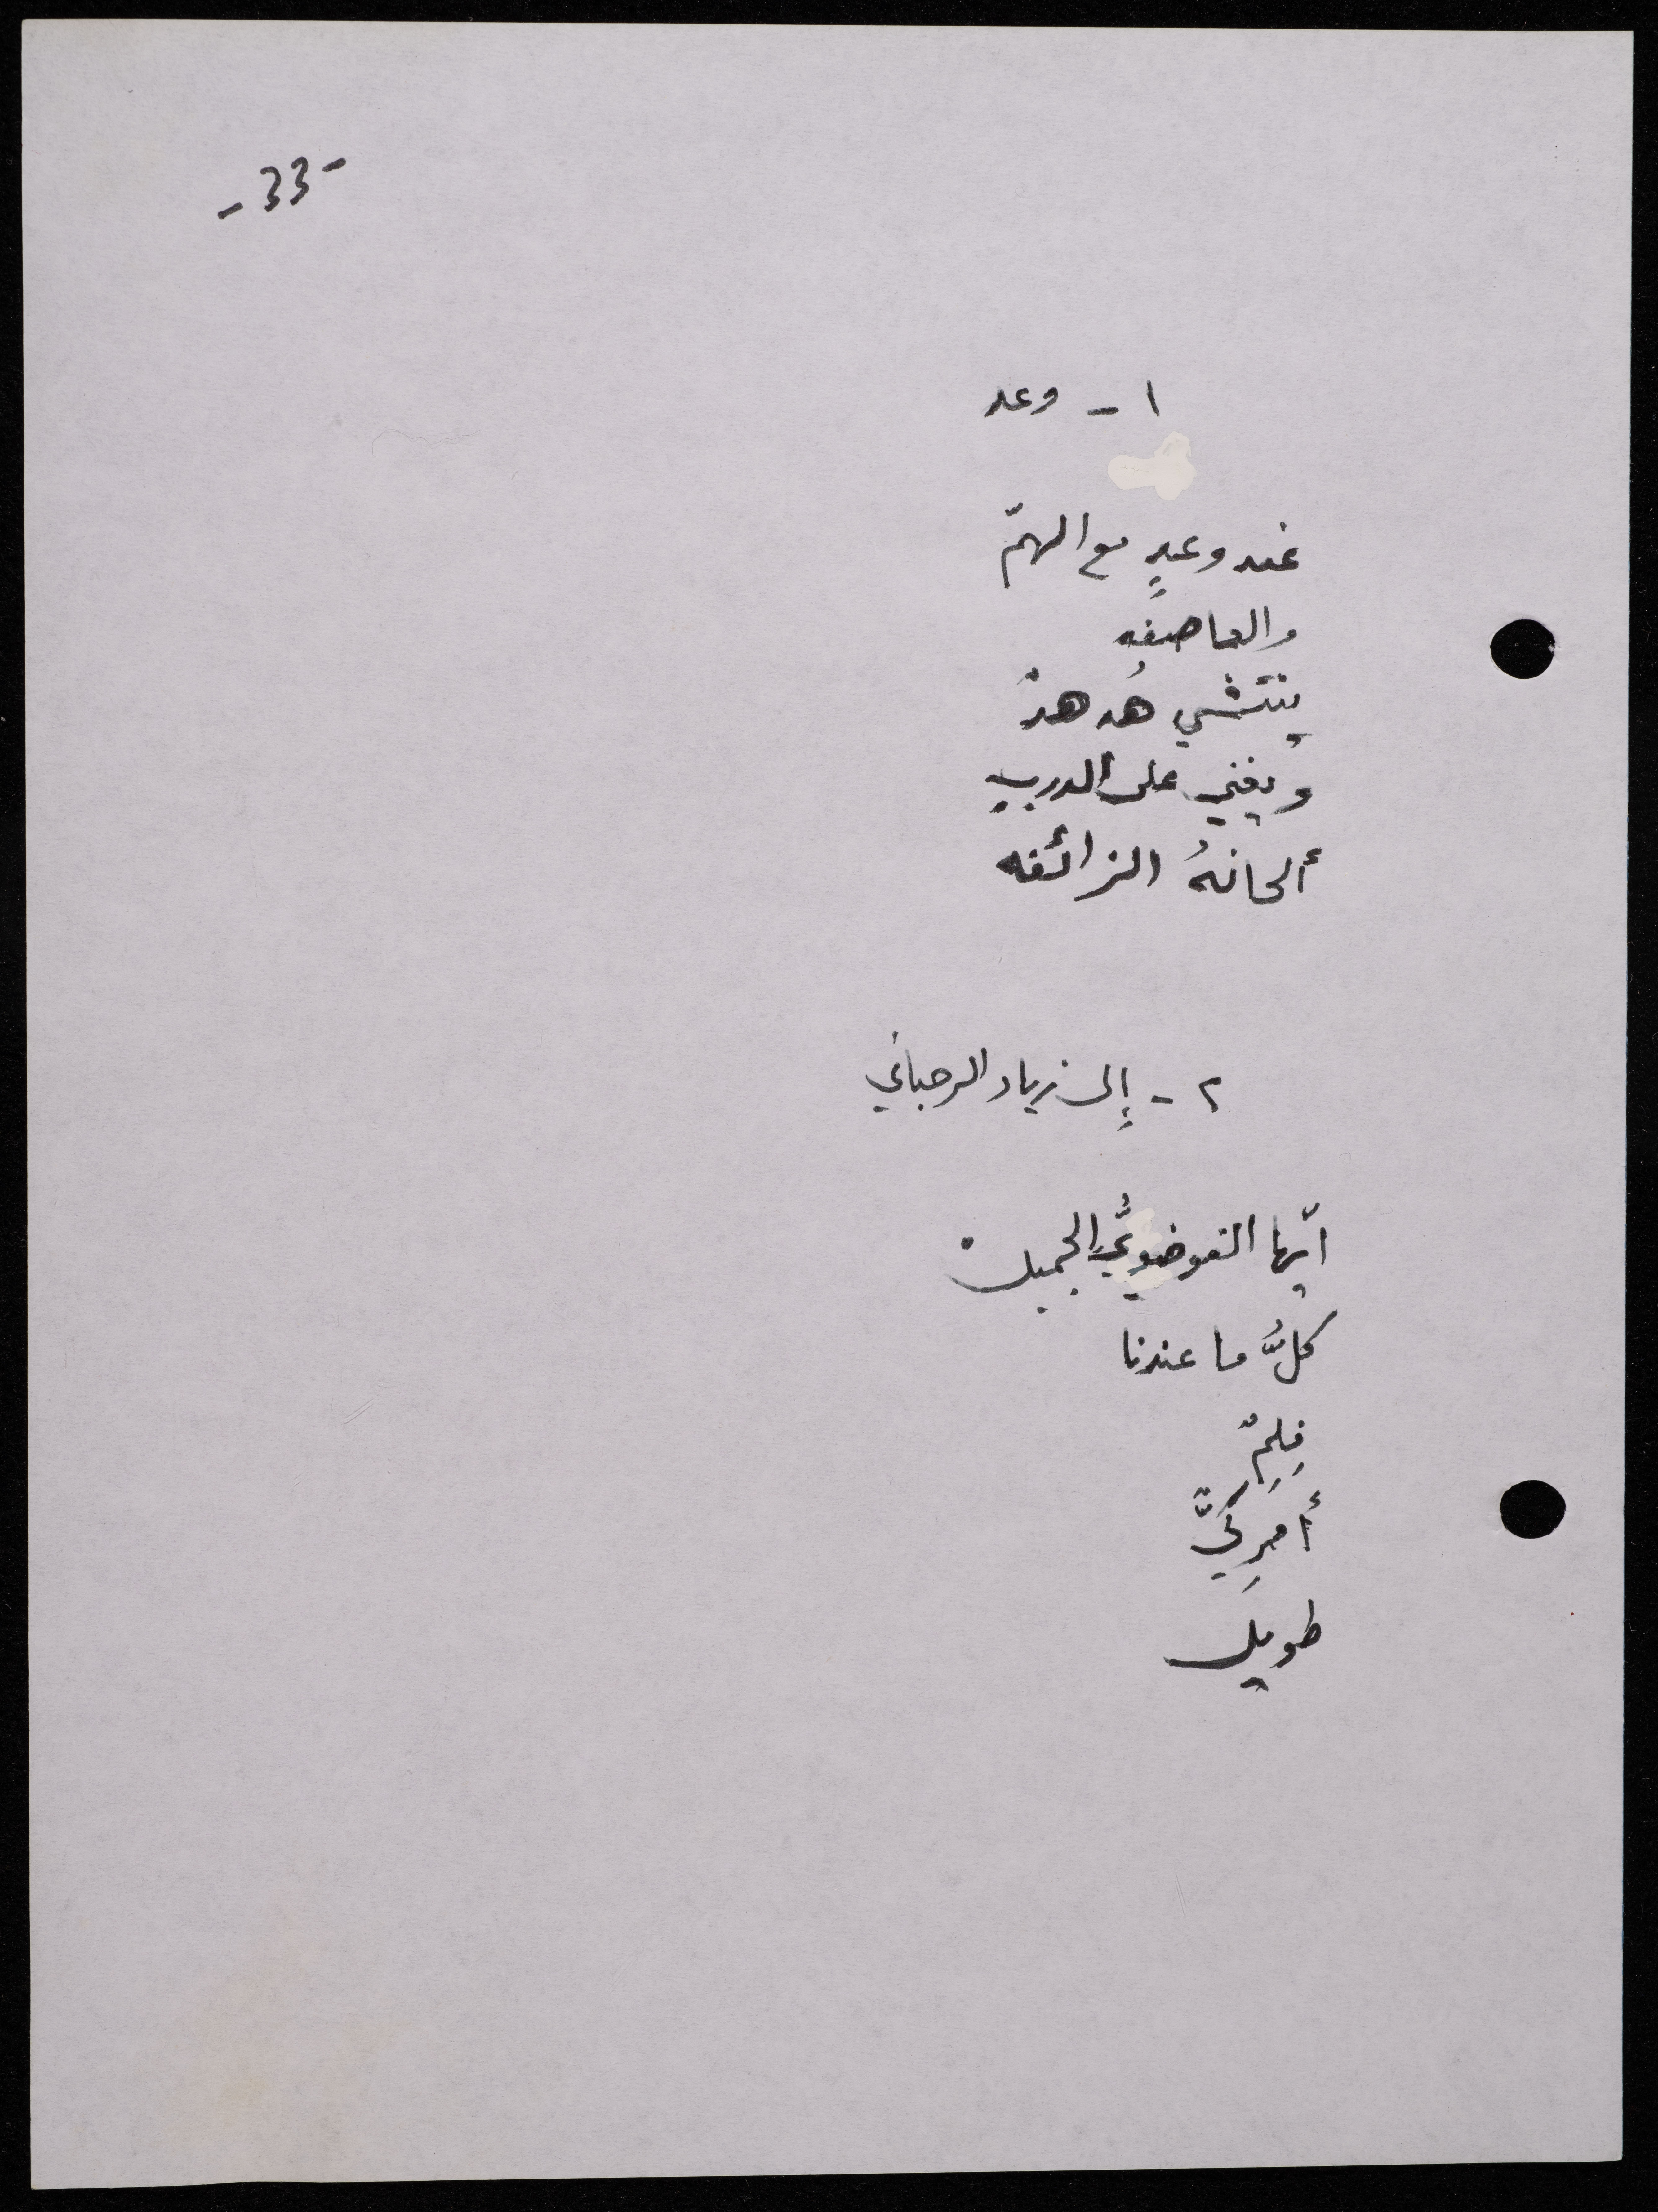 -33-
١ - وعد
عند وعدٍ مع الهمّ
والعاصفه
ينتشي هُدهدْ
ويغني على الدربِ
ألحانهُ الزائفه
٢ - إلى زياد الرحباني
ايّها الفوضويُّ الجميلْ
كلُّ ما عندنا
فِلِمْ
أمرِكيّْ
طويل